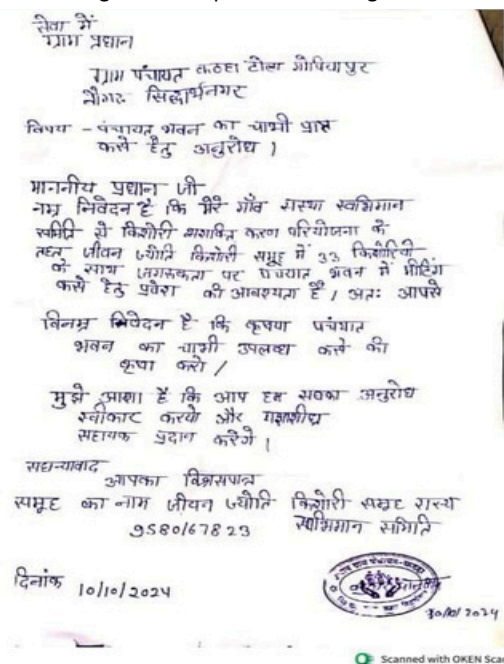 सेवा में
ग्राम प्रधान
ग्राम पंचायत कठहा टोला गोपियापुर
नौगढ़ सिद्धार्थनगर
विषय - पंचायत भवन का चाभी प्राप्त
करने हेतु अनुरोध ।
माननीय प्रधान जी
नम्र निवेदन है कि मेरे गाँव संस्था स्वभिमान
समिति से किशोरी करण परियोजना के
तहत जीवन ज्योति किशोरी समूह में 33 किशोरियों
के साथ जागरूकता पर पंचयात भवन में मीटिंग
करने हेतु प्रवेश की आवश्यता है / अतः आपसे
विनम्र निवेदन है कि कृपया पंचयात
भवन का चाभी उपलब्ध करने की
कृपा करो /
मुझे आशा है कि आप हम सबका अनुरोध
स्वीकार करेगे और
सहायक प्रदान करेंगे ।
सधन्यावाद
आपका
समूह का नाम जीवन ज्योति किशोरी समूह
9580167823 स्वाभिमान समिति
दिनांक 10/10/2024
2024
Scanned with OKEN Sca